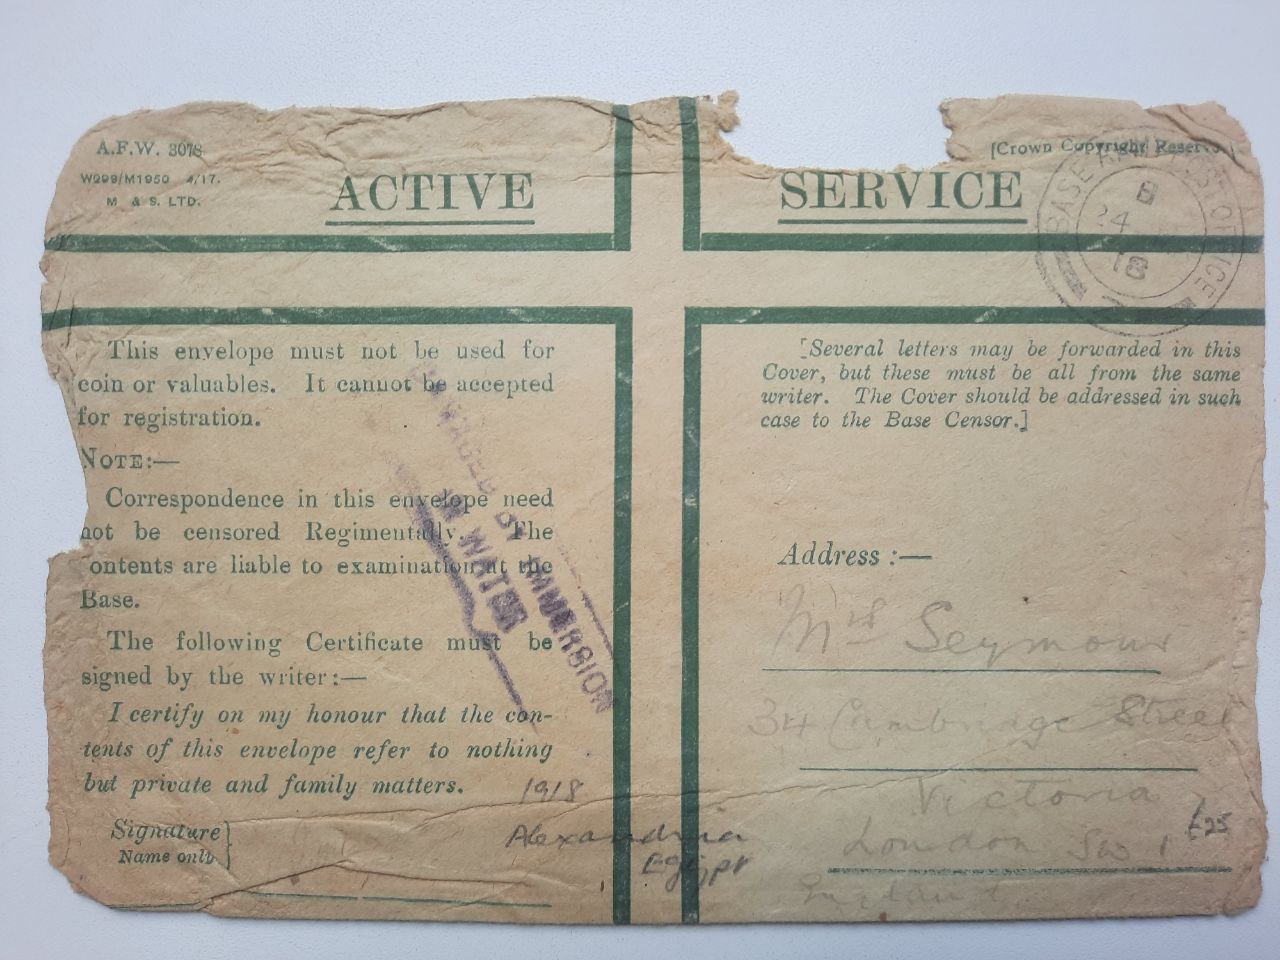 A.F.W. 3078
W299/M1950 4/17.
M & S. LTD.
[Crown Copyright Reserv
ACTIVE SERVICE
BASE POST OFFICE
B
24
18
Z
This envelope must not be used for
coin or valuables. It cannot be accepted
for registration.
NOTE:—
Correspondence in this envelope need
not be censored Regimentally. The
ontents are liable to examination at the
Base.
The following Certificate must be
signed by the writer:—
I certify on my honour that the con-
tents of this envelope refer to nothing
but private and family matters.
Signature
Name only
DAMAGED BY IMMERSION
IN WATER
[Several letters may be forwarded in this
Cover, but these must be all from the same
writer. The Cover should be addressed in such
case to the Base Censor.]
Address :—
Mrs Seymour
34 Cambridge Street
Victoria
London SW 1
England
1918
Alexandria
Egypt
£25